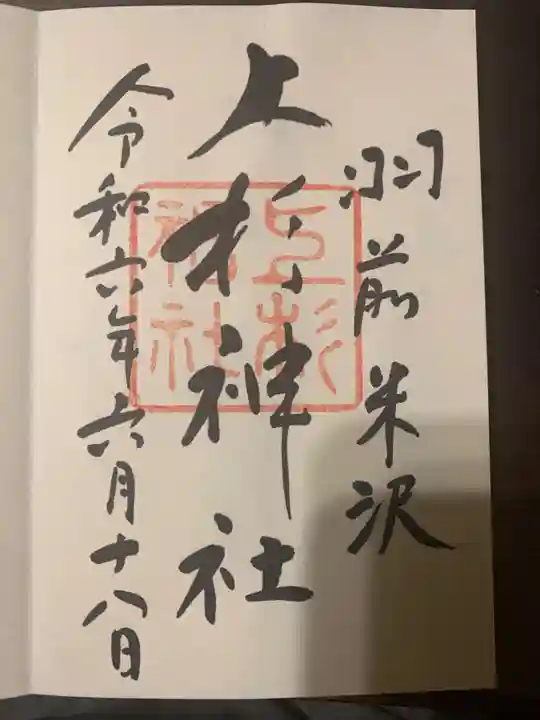 羽前米沢
上杉神社
上杉神社
令和六年六月十八日